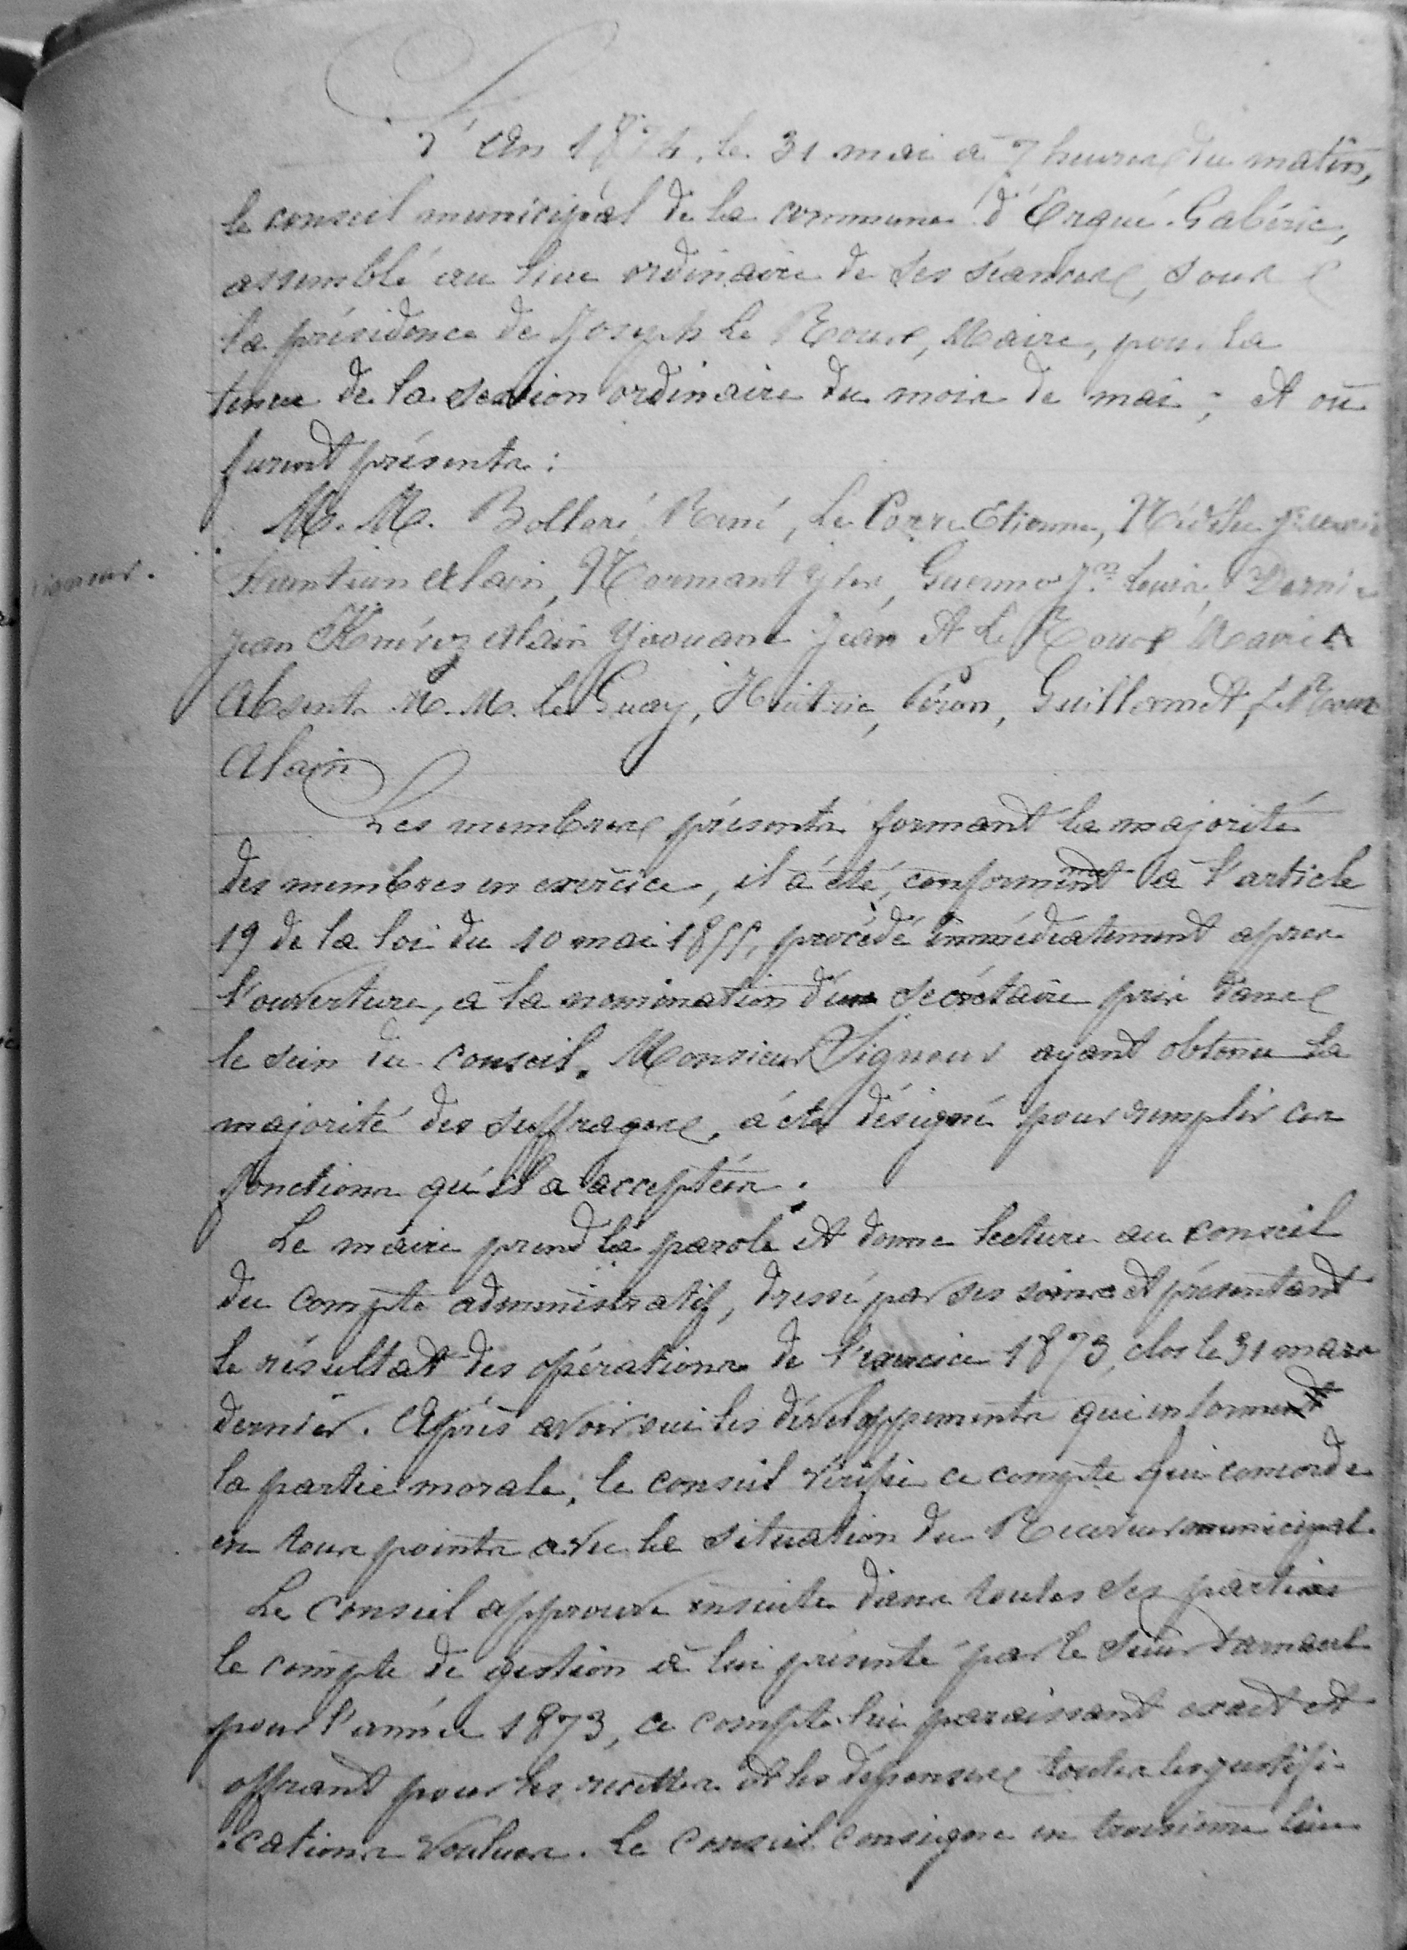 L'An 1874, le 31 mai à 7 heures du matin,
le conseil municipal de la commune d'Ergué-Gabéric,
assemblé au lieu ordinaire de ses séances, sous
la présidence de Joseph Le Roux, Maire, pour la
tenue de la session ordinaire du mois de mai ; et où
furent présents :
M. M. Bolloré René, Le Corre Etienne, Nédélec
Alain, Normant Yves, Guennou Jn Louis,
Jean Alain Yvouane Jean et Le Roux Maire
Absents M. M. Le Guay, Huitric, Péron, Guillermet, Le Roux
Alain
Les membres présents formant la majorité
des membres en exercice, il a été, conformément à l'article
19 de la loi du 10 mai 1855, procédé immédiatement après
l'ouverture, à la nomination d'un secrétaire pris dans
le sein du conseil. Monsieur Signour ayant obtenu la
majorité des suffrages, a été désigné pour remplir ces
fonctions qu'il a acceptées.
Le maire prend la parole et donne lecture au conseil
du compte administratif, dressé par ses soins et présentant
le résultat des opérations de l'exercice 1873, clos le 31 mars
dernier. Après avoir oui les développements qui en forment
la partie morale, le conseil vérifie ce compte qui concorde
en tous points avec la situation du Receveur municipal.
Le Conseil approuve ensuite dans toutes ses parties
le compte de gestion à lui présenté par le sieur
pour l'année 1873, ce compte lui paraissant exact et
offrant pour les recettes et les dépenses toutes les justifi-
cations voulues. Le Conseil consigne en troisième lieu